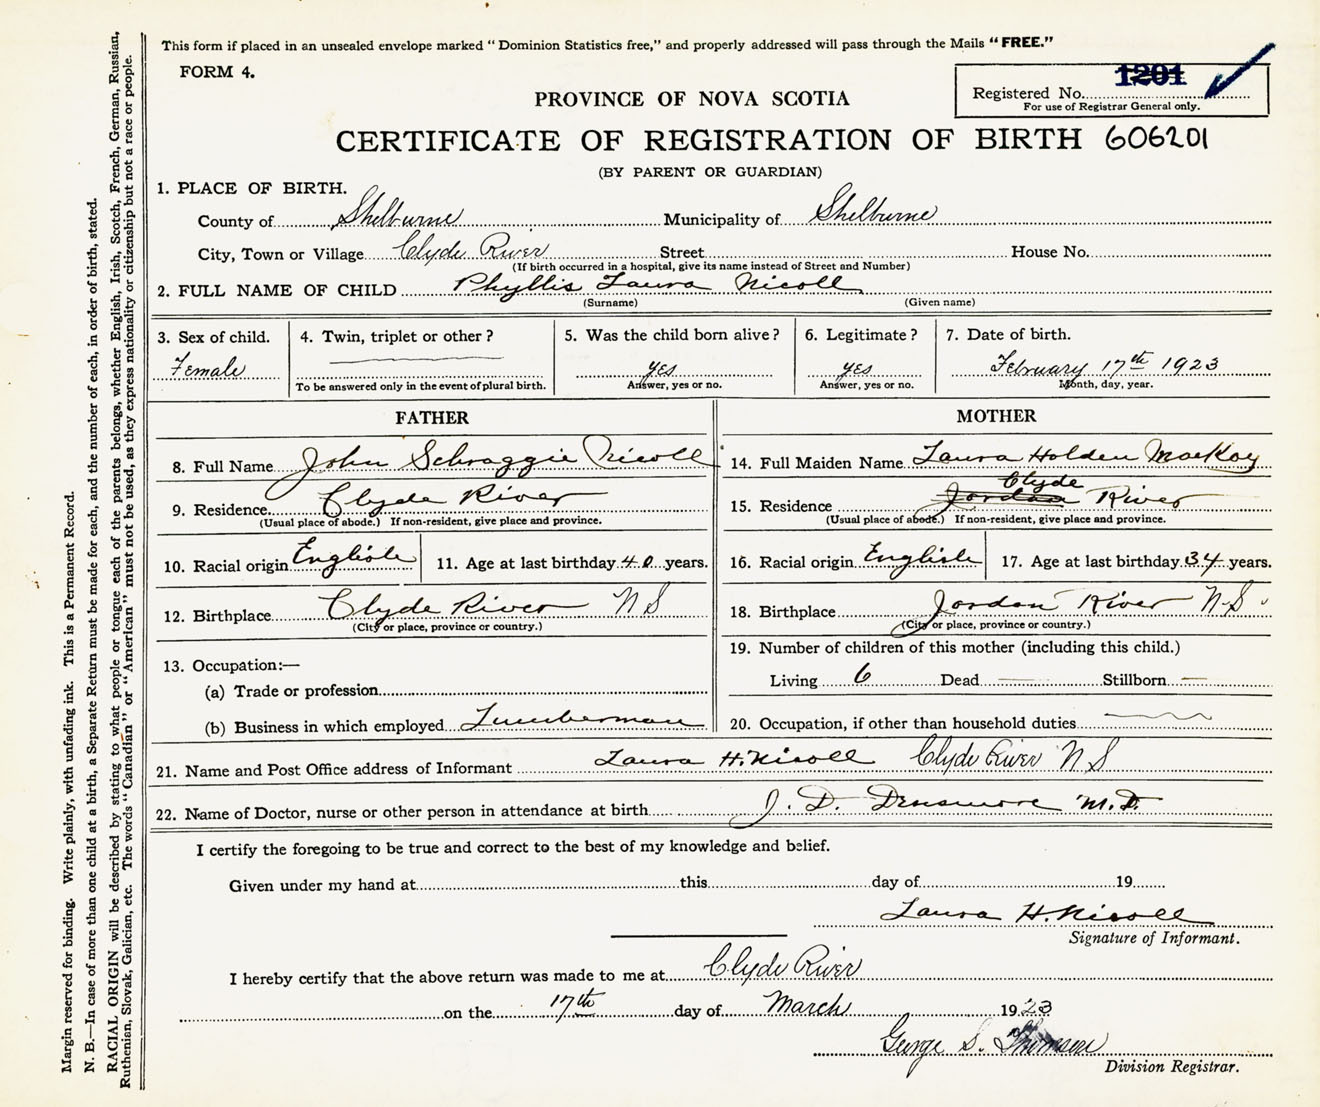 This form if placed in an unsealed envelope marked “Dominion Statistics free,” and properly addressed will pass through the Mails “FREE.”
FORM 4.
1201
Registered No.
For use of Registrar General only.
PROVINCE OF NOVA SCOTIA
CERTIFICATE OF REGISTRATION OF BIRTH 606201
(BY PARENT OR GUARDIAN)
1. PLACE OF BIRTH.
County of Shelburne Municipality of Shelburne
City, Town or Village Clyde River Street House No.
(If birth occurred in a hospital, give its name instead of Street and Number)
2. FULL NAME OF CHILD Phyllis Laura Nicoll
(Surname) (Given name)
3. Sex of child. 4. Twin, triplet or other? 5. Was the child born alive? 6. Legitimate? 7. Date of birth.
Female yes yes February 17th 1923
To be answered only in the event of plural birth. Answer, yes or no. Answer, yes or no. Month, day, year.
FATHER
8. Full Name John Schraggie Nicoll
9. Residence Clyde River
(Usual place of abode.) If non-resident, give place and province.
10. Racial origin English 11. Age at last birthday 40 years.
12. Birthplace Clyde River N S
(City or place, province or country.)
13. Occupation:—
(a) Trade or profession
(b) Business in which employed Lumberman
MOTHER
14. Full Maiden Name Laura Holden MacKay
Clyde
15. Residence Jordan River
(Usual place of abode.) If non-resident, give place and province.
16. Racial origin English 17. Age at last birthday 34 years.
18. Birthplace Jordan River N.S.
(City or place, province or country.)
19. Number of children of this mother (including this child.)
Living 6 Dead — Stillborn —
20. Occupation, if other than household duties
21. Name and Post Office address of Informant Laura H. Nicoll Clyde River N S
22. Name of Doctor, nurse or other person in attendance at birth J. D. Densmore M.D.
I certify the foregoing to be true and correct to the best of my knowledge and belief.
Given under my hand at this day of 19
Laura H. Nicoll
Signature of Informant.
I hereby certify that the above return was made to me at Clyde River
on the 17th day of March 1923
George S. Thomson
Division Registrar.
Margin reserved for binding. Write plainly, with unfading ink. This is a Permanent Record.
N. B.—In case of more than one child at a birth, a Separate Return must be made for each, and the number of each, in order of birth, stated.
RACIAL ORIGIN will be described by stating to what people or tongue each of the parents belongs, whether English, Irish, Scotch, French, German, Russian,
Ruthenian, Slovak, Galician, etc. The words “Canadian” or “American” must not be used, as they express nationality or citizenship but not a race or people.